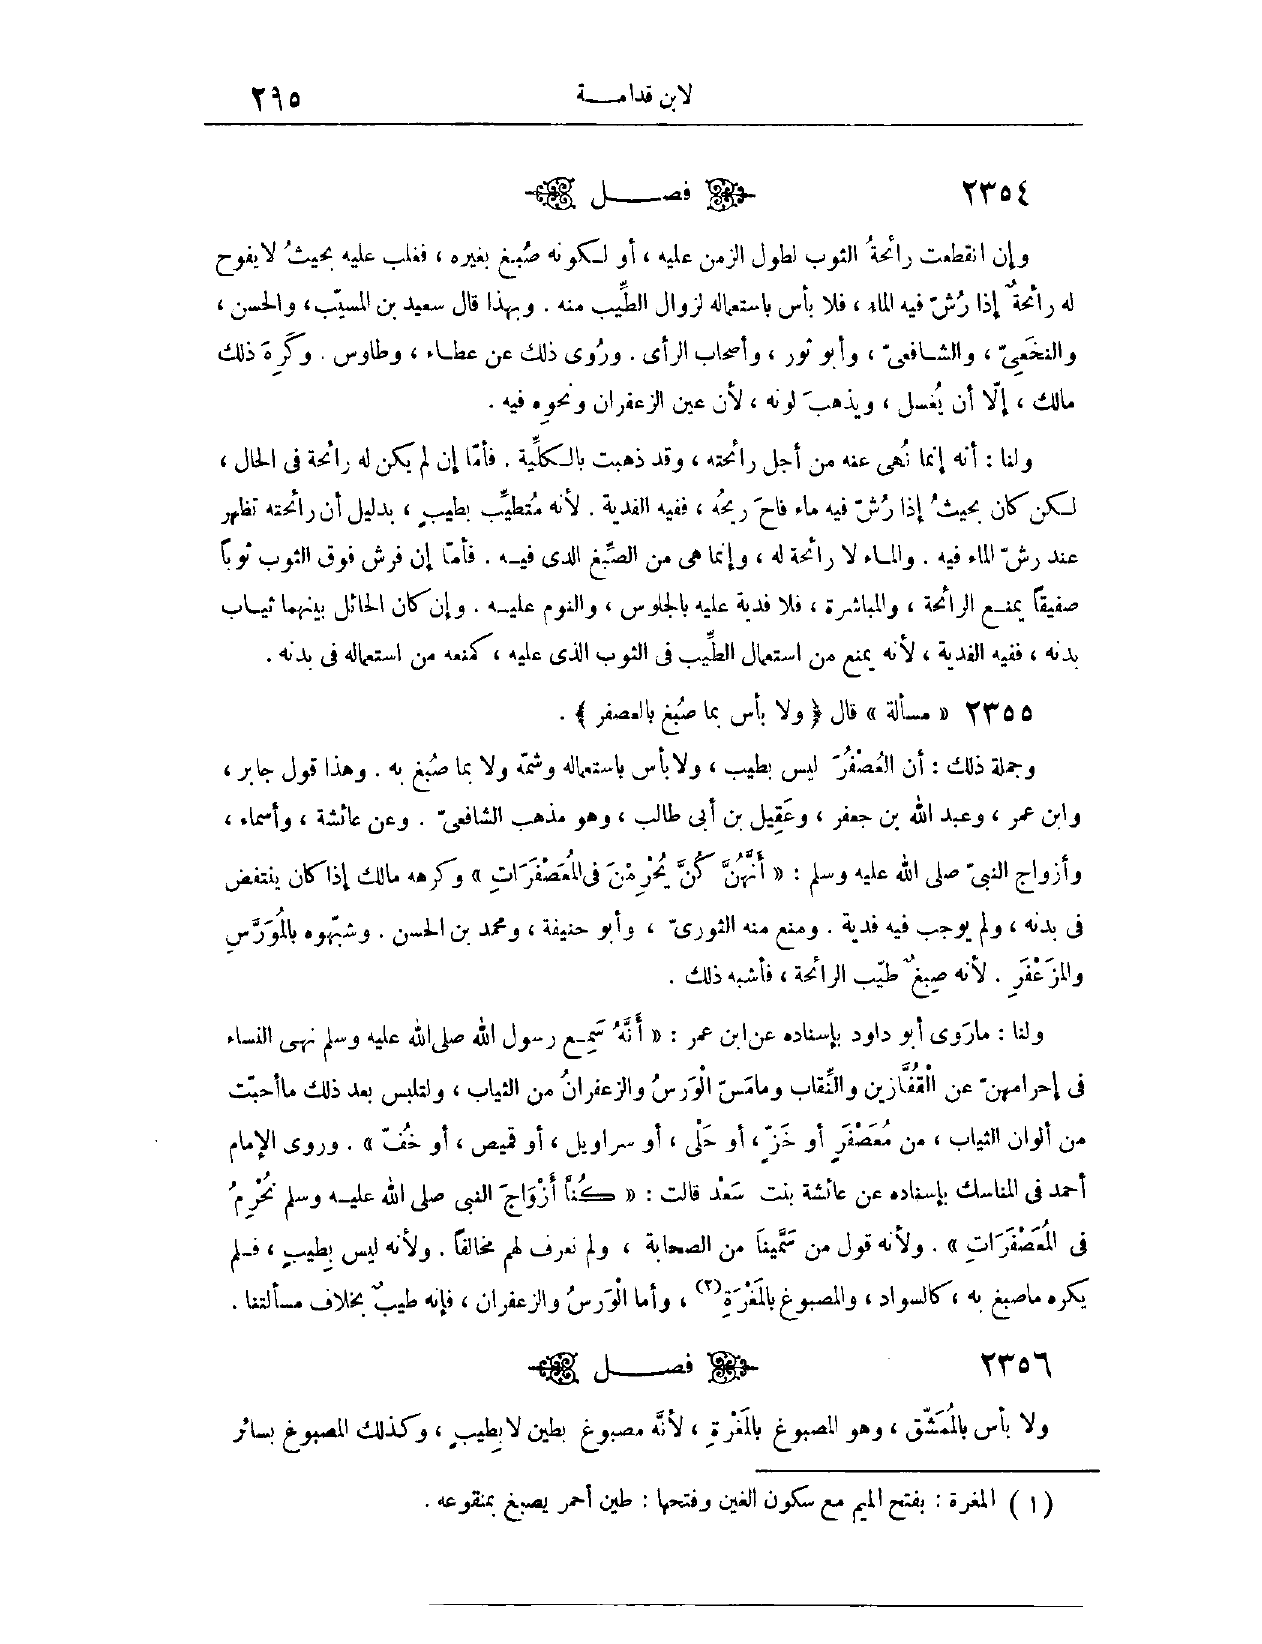 لابن قدامة ٢٩٥
٢٣٥٤ فصل
وإن انقطعت رائحةُ الثوب لطول الزمن عليه ، أو لكونه صُبغ بغيره ، فغلب عليه بحيثُ لا يفوح
له رائحةٌ إذا رُشّ فيه الماء ، فلا بأس باستعماله لزوال الطِّيب منه . وبهذا قال سعيد بن المسيّب ، والحسن ،
والنخَعِيّ ، والشافعيّ ، وأبو ثور ، وأصحاب الرأى . ورُوى ذلك عن عطاء ، وطاوس . وكَرِهَ ذلك
مالك ، إلّا أن يُغسل ، ويذهبَ لونه ، لأن عين الزعفران ونحوِه فيه .
ولنا : أنه إنما نُهى عنه من أجل رائحته ، وقد ذهبت بالكلِّية . فأمّا إن لم يكن له رائحة فى الحال ،
لكن كان بحيثُ إذا رُشّ فيه ماء فاحَ ريحُه ، ففيه الفدية . لأنه مُتطيِّب بطيبٍ ، بدليل أن رائحته تظهر
عند رشّ الماء فيه . والماء لا رائحة له ، وإنما هى من الصِّبغ الذى فيه . فأمّا إن فرش فوق الثوب ثوباً
صفيقاً يمنع الرائحة ، والمباشرة ، فلا فدية عليه بالجلوس ، والنوم عليه . وإن كان الحائل بينهما ثياب
بدنه ، ففيه الفدية ، لأنه يمنع من استعمال الطِّيب فى الثوب الذى عليه ، كمنعه من استعماله فى بدنه .
٢٣٥٥ « مسألة » قال ﴿ ولا بأس بما صُبغ بالعصفر ﴾ .
وجملة ذلك : أن العُصْفُرَ ليس بطيب ، ولا بأس باستعماله وشمّه ولا بما صُبغ به . وهذا قول جابر ،
وابن عمر ، وعبد الله بن جعفر ، وعَقِيل بن أبى طالب ، وهو مذهب الشافعىّ . وعن عائشة ، وأسماء ،
وأزواج النبىّ صلى الله عليه وسلم : « أَنَّهُنَّ كُنَّ يُحْرِمْنَ فى المُعَصْفَرَاتِ » وكرهه مالك إذا كان ينتفض
فى بدنه ، ولم يوجب فيه فدية . ومنع منه الثورىّ ، وأبو حنيفة ، ومحمد بن الحسن . وشبّهوه بالمُوَرَّسِ
والمزَعْفَرِ . لأنه صِبغٌ طيّب الرائحة ، فأشبه ذلك .
ولنا : مارَوى أبو داود بإسناده عن ابن عمر : « أَنَّهُ سَمِع رسول الله صلى الله عليه وسلم نهى النساء
فى إحرامهنّ عن الْقُفَّازين والنِّقاب ومامَسّ الْوَرسُ والزعفرانُ من الثياب ، ولتلبس بعد ذلك ماأحبّت
من ألوان الثياب ، من مُعَصْفَرٍ أو خَزّ ، أو حَلْى ، أو سراويل ، أو قميص ، أو خُفّ » . وروى الإمام
أحمد فى المناسك بإسناده عن عائشة بنت سَعْد قالت : « كُنَّا أَزْوَاجَ النبى صلى الله عليه وسلم نُحْرِمُ
فى المُعَصْفَرَاتِ » . ولأنه قول من سَمَّيناَ من الصحابة ، ولم نعرف لهم مخالفاً . ولأنه ليس بِطيبٍ ، فلم
يكره ماصبغ به ، كالسواد ، والمصبوغ بالمَغْرَةِ(٢) ، وأما الْوَرسُ والزعفران ، فإنه طيبٌ بخلاف مسألتنا .
٢٣٥٦ فصل
ولا بأس بالمُمَشّق ، وهو المصبوغ بالمَغْرةِ ، لأنَّه مصبوغ بطين لا بِطيبٍ ، وكذلك المصبوغ بسائر
( ١ ) المغرة : بفتح الميم مع سكون الغين وفتحها : طين أحمر يصبغ بمنقوعه .